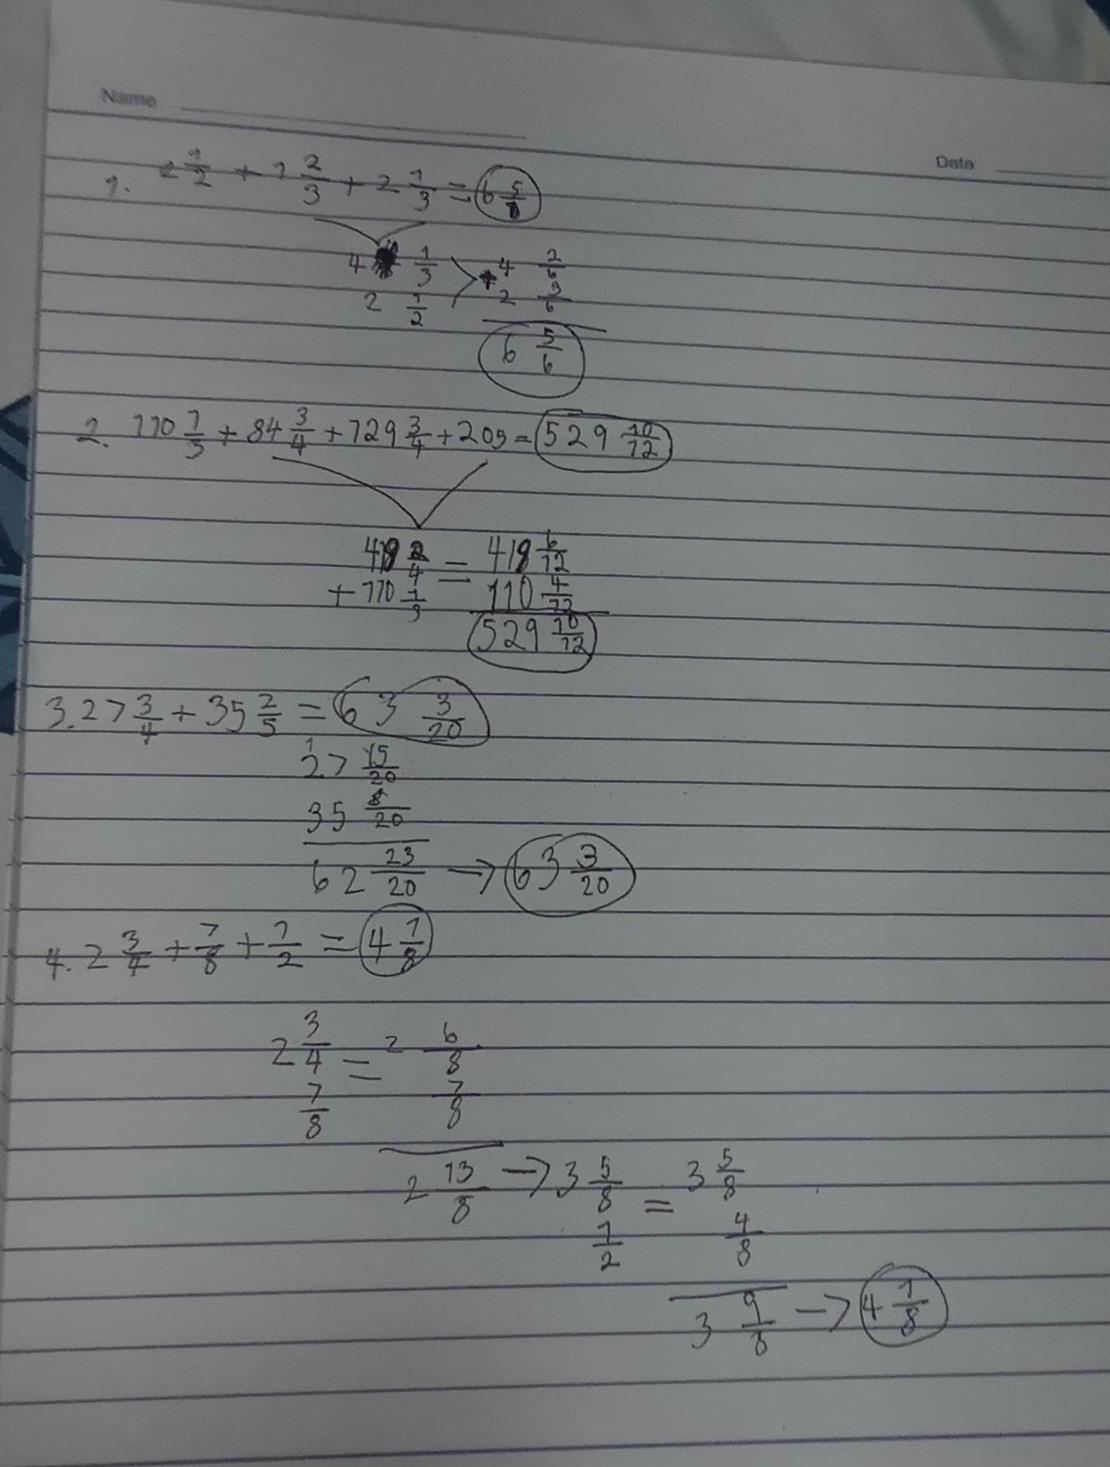 Name
Date
1. 2 1/2 + 1 2/3 + 2 1/3 = 6 5/6
4 1/3 4 2/6
2 1/2 2 3/6
6 5/6
2. 110 1/3 + 84 3/4 + 129 3/4 + 205 = 529 10/12
418 2/4 = 418 6/12
+ 110 1/3 110 4/12
529 10/12
3. 27 3/4 + 35 2/5 = 63 3/20
1
27 15/20
35 8/20
62 23/20 → 63 3/20
4. 2 3/4 + 7/8 + 1/2 = 4 1/8
2 3/4 = 2 6/8
7/8 7/8
2 13/8 → 3 5/8 = 3 5/8
1/2 4/8
3 9/8 → 4 1/8